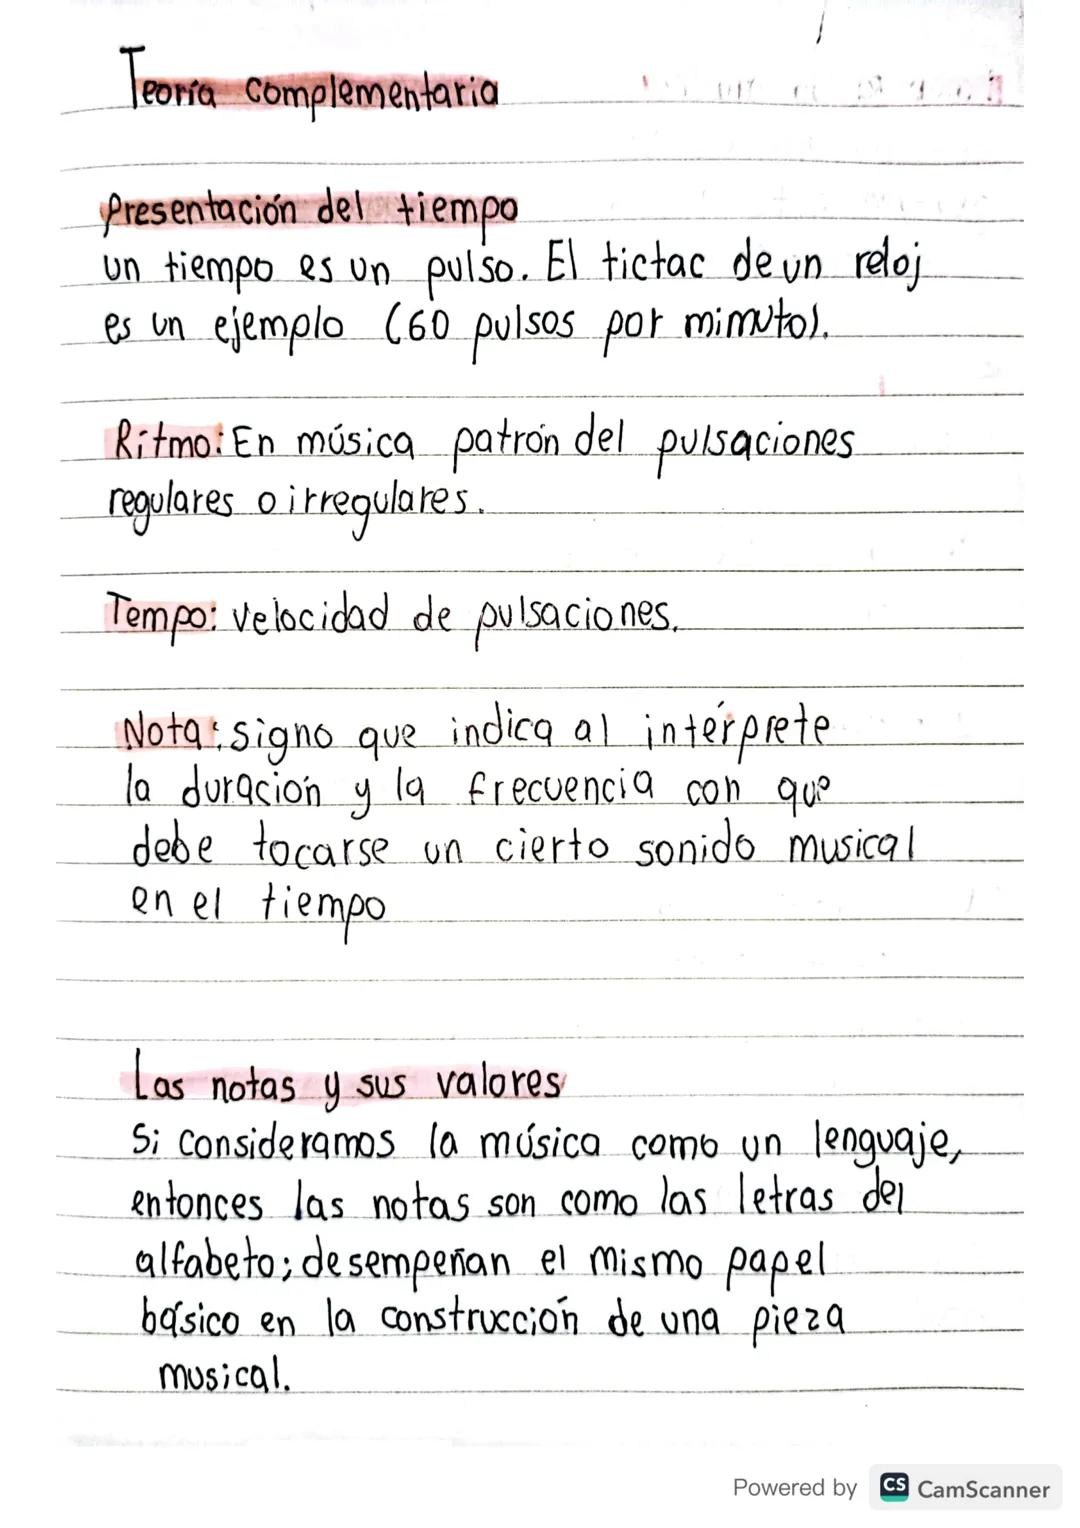 Teoría complementaria
Presentación del tiempo
un tiempo es un pulso. El tictac de un reloj
es un ejemplo (60 pulsos por mimuto).
Ritmo: En música patrón del pulsaciones
regulares o irregulares.
Tempo: velocidad de pulsaciones.
Nota: signo que indica al intérprete
la duración y la frecuencia con que
debe tocarse un cierto sonido musical
en el tiempo
Las notas y sus valores
Si consideramos la música como un lenguaje,
entonces las notas son como las letras del
alfabeto; desempeñan el mismo papel
básico en la construcción de una pieza
musical.
Powered by CS CamScanner